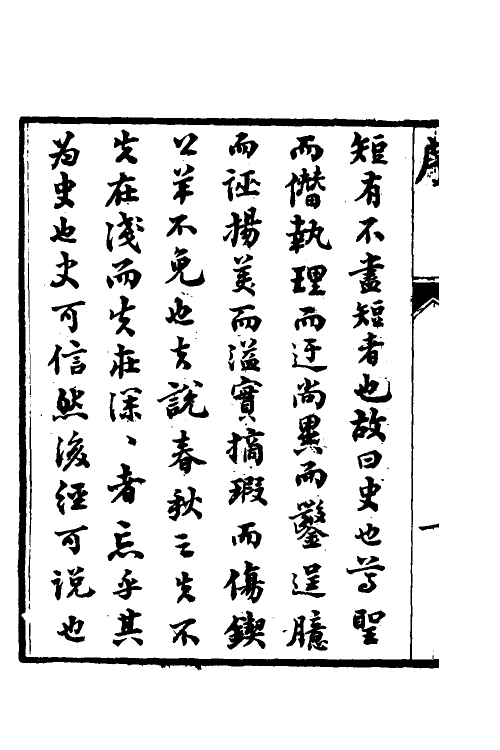 短有不盡短者也故曰史也尊聖
而僭執理而迂尚異而鑿逞臆
而誣揚美而溢實摘瑕而傷鍥
公羊不免也夫說春秋之失不
失在淺而失在深〻者忘乎其
為史也史可信然後經可說也
一